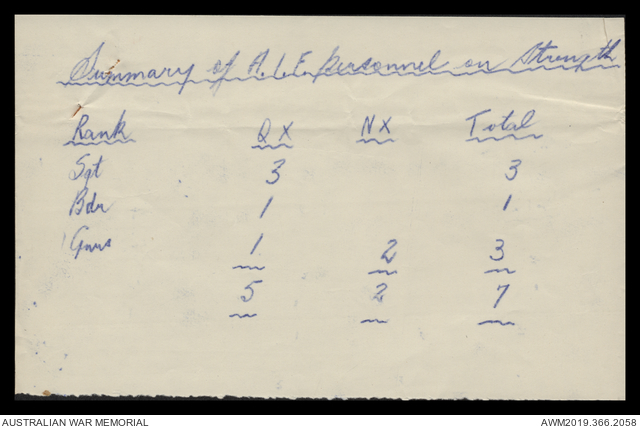 Summary of A.I.F. personnel on Strength
Rank QX NX Total
Sgt 3 3
Bdr 1 1
Gnrs 1 2 3
5 2 7
AUSTRALIAN WAR MEMORIAL AWM2019.366.2058